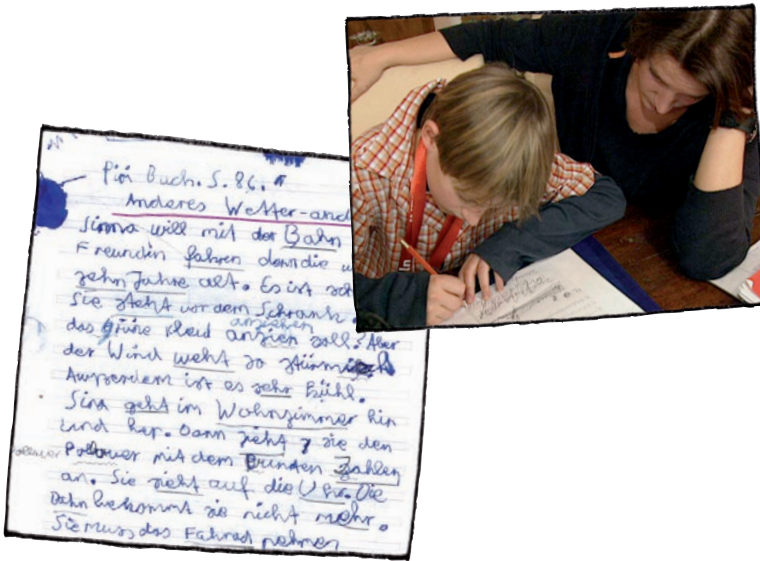 Buch. S. 86.
Anderes Wetter-and
Sinna will mit der Bahn
Freundin fahren denn die w
zehn Jahre alt. Es ist
Sie steht vor dem Schrank
anziehen
das grüne kleid anzien soll. Aber
der Wind weht so stürmisch
Ausserdem ist es sehr kühl.
Sina geht im Wohnzimmer hin
und her. Dann zieht sie den
Pollower mit dem bunten Zahlen
an. Sie sieht auf die Uhr. Die
Bahn bekommt sie nicht mehr.
Sie muss das Fahrad nehmen